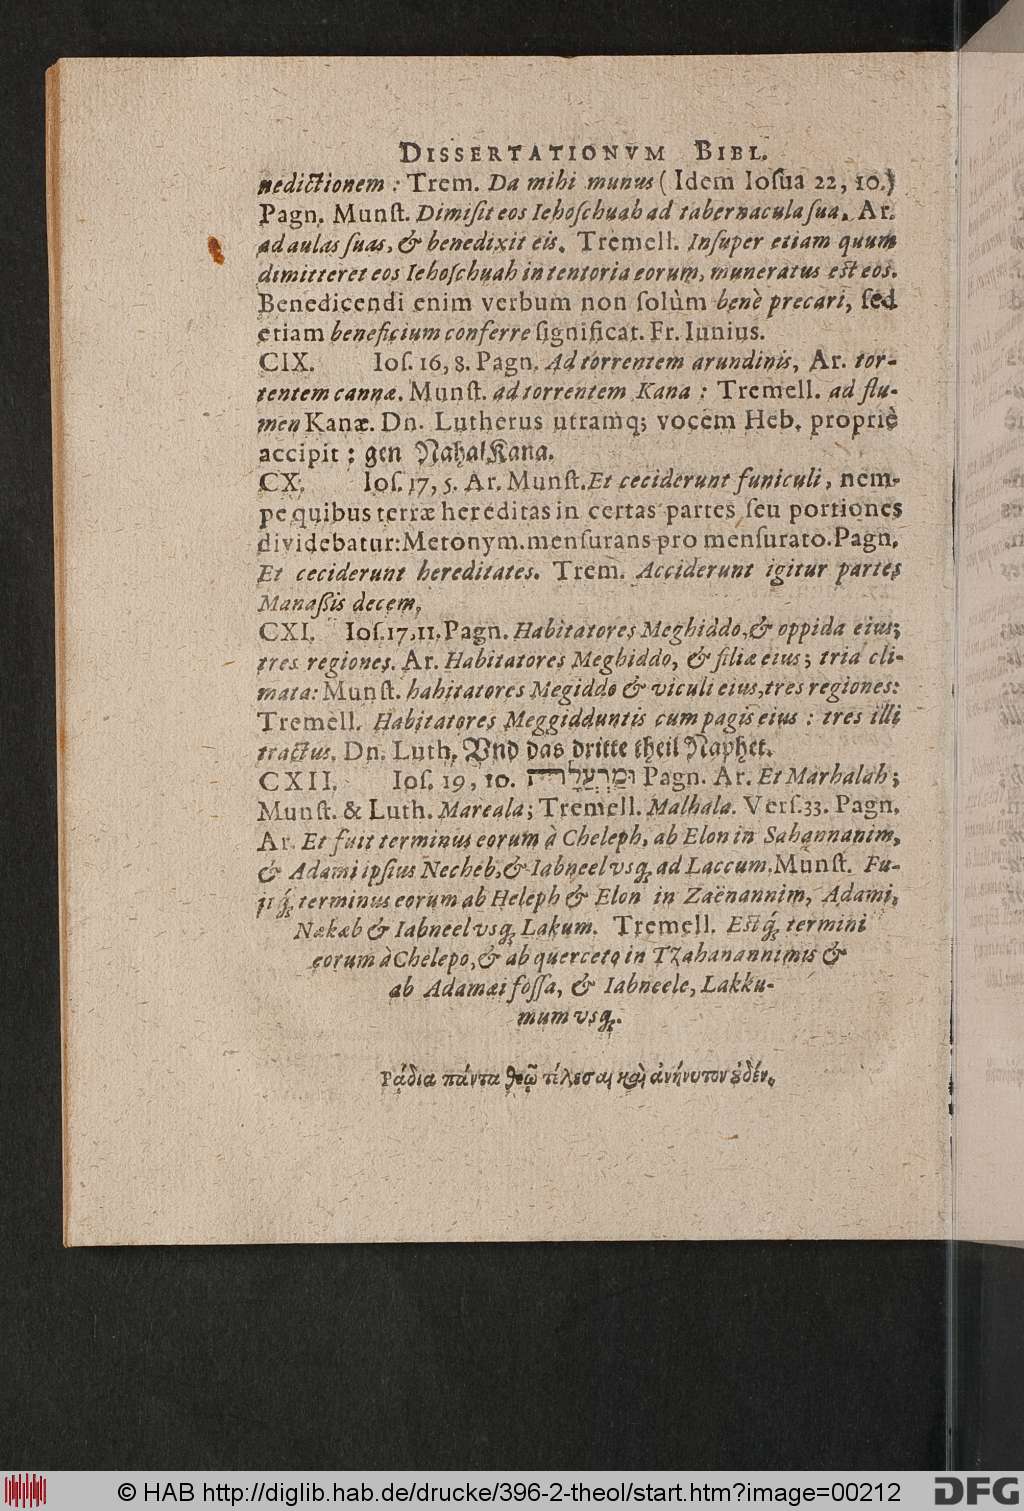 DISSERTATIONVM BIBL.
nedictionem : Trem. Da mihi munus ( Idem Ioſua 22, 10.)
Pagn. Munſt. Dimiſit eos Iehoſchuah ad tabernacula ſua. Ar.
ad aulas ſuas, & benedixit eis. Tremell. Inſuper etiam quum
dimitteret eos Iehoſchuah in tentoria eorum, muneratus eſt eos.
Benedicendi enim verbum non ſolùm benè precari, ſed
etiam beneficium conferre ſignificat. Fr. Iunius.
CIX. Ioſ. 16, 8. Pagn. Ad torrentem arundinis, Ar. tor-
rentem cannæ. Munſt. ad torrentem Kana : Tremell. ad flu-
men Kanæ. Dn. Lutherus utramq; vocem Heb. propriè
accipit : gen Nahal Kana.
CX. Ioſ. 17, 5. Ar. Munſt. Et ceciderunt funiculi, nem-
pe quibus terræ hereditas in certas partes ſeu portiones
dividebatur: Metonym. menſurans pro menſurato. Pagn.
Et ceciderunt hereditates. Trem. Acciderunt igitur partes
Manaßis decem.
CXI. Ioſ. 17. 11. Pagn. Habitatores Meghiddo, & oppida eius;
tres regiones. Ar. Habitatores Meghiddo, & filiæ eius; tria cli-
mata: Munſt. habitatores Megiddo & viculi eius, tres regiones:
Tremell. Habitatores Meggidduntis cum pagis eius : tres illi
tractus. Dn. Luth. Vnd das dritte theil Naphet.
CXII. Ioſ. 19, 10. וּמַרְעֲלָה Pagn. Ar. Et Marhalah;
Munſt. & Luth. Mareala; Tremell. Malhala. Verſ. 33. Pagn.
Ar. Et fuit terminus eorum à Cheleph, ab Elon in Sahannanim,
& Adami ipſius Necheb, & Iabneel vsq; ad Laccum. Munſt. Fu-
it q́; terminus eorum ab Heleph & Elon in Zaënannim, Adami,
Nækæb & Iabneel vsq; Lakum. Tremell. Eſtq́; termini
eorum à Chelepo, & ab querceto in Tzahanannimis &
ab Adamæi foſſa, & Iabneele, Lakku-
mum vsq;.
Ῥᾴδια πάντα θεῷ τελεσαι καὶ ἀνήνυτον ȣδέν.
© HAB http://diglib.hab.de/drucke/396-2-theol/start.htm?image=00212
DFG